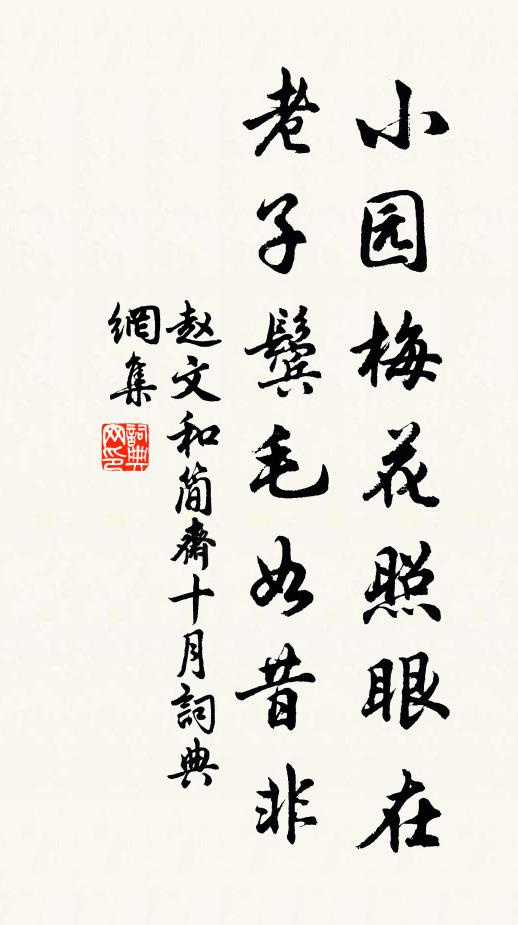 小园梅花照眼在
老子鬓毛如昔非
赵文和简斋十月詞典
網集
詞典
网印